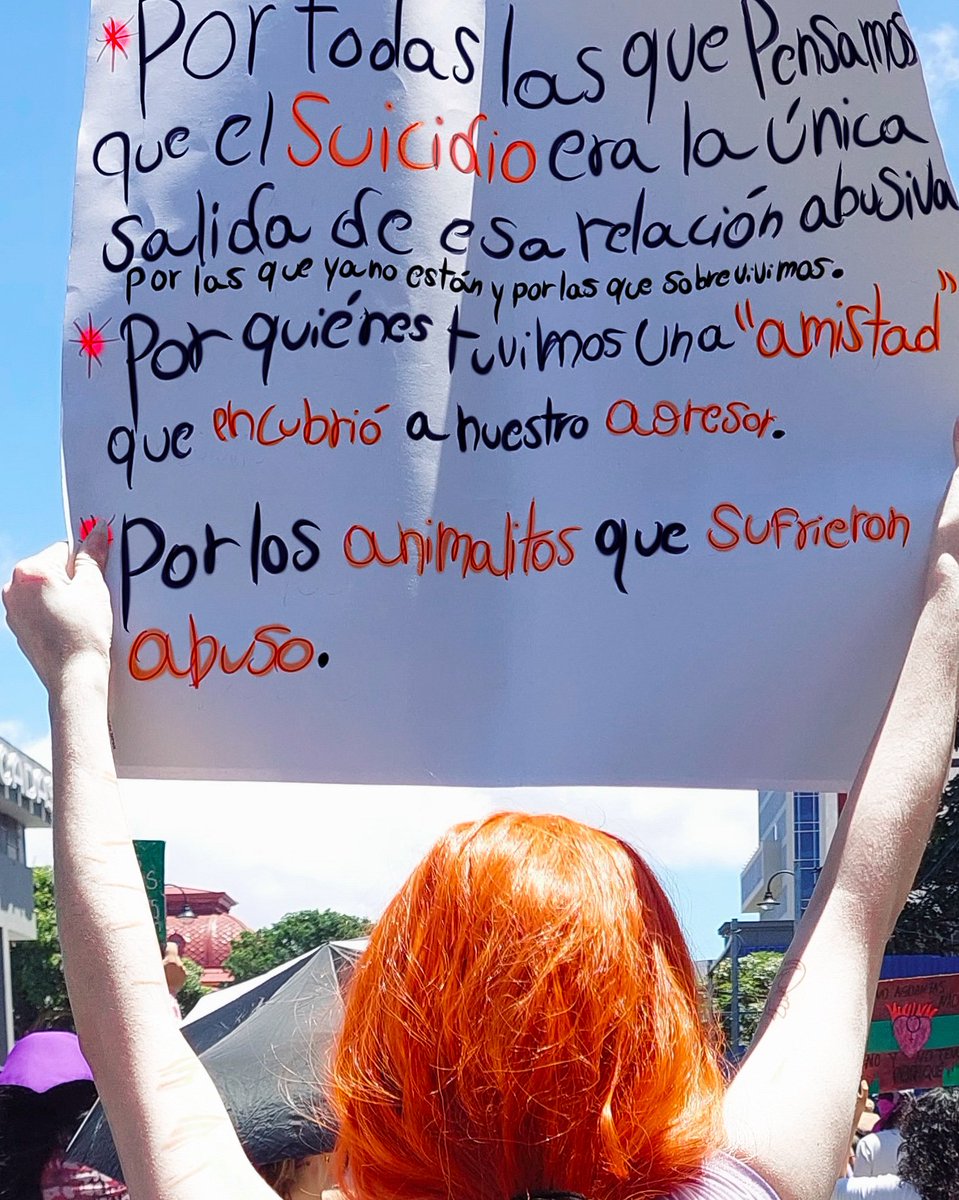 *Por todas las que Pensamos
que el Suicidio era la única
salida de esa relación abusiva
por las que ya no están y por las que sobrevivimos.
*Por quiénes tuvimos una "amistad"
que encubrió a nuestro agresor.
*Por los animalitos que sufrieron
abuso.